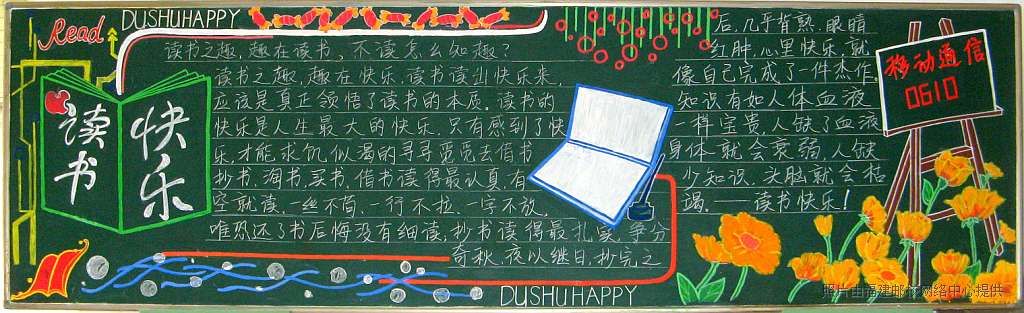 Read
DUSHUHAPPY
读书
快乐
读书之趣,趣在读书,不读怎么知趣?
读书之趣,趣在快乐,读书读出快乐来,
应该是真正领悟了读书的本质。读书的
快乐是人生最大的快乐,只有感到了快
乐,才能求饥似渴的寻寻觅觅去借书
抄书、淘书、买书,借书读得最认真,有
空就读,一丝不苟,一行不拉,一字不放,
唯恐还了书后悔没有细读;抄书读得最扎实,争分
夺秋,夜以继日,抄完之
后,几乎背熟,眼睛
红肿,心里快乐,就
像自己完成了一件杰作。
知识有如人体血液
一样宝贵,人缺了血液
身体就会衰弱,人缺
少知识,头脑就会枯
竭。——读书快乐!
DUSHUHAPPY
移动通信
0610
照片由福建邮校网络中心提供